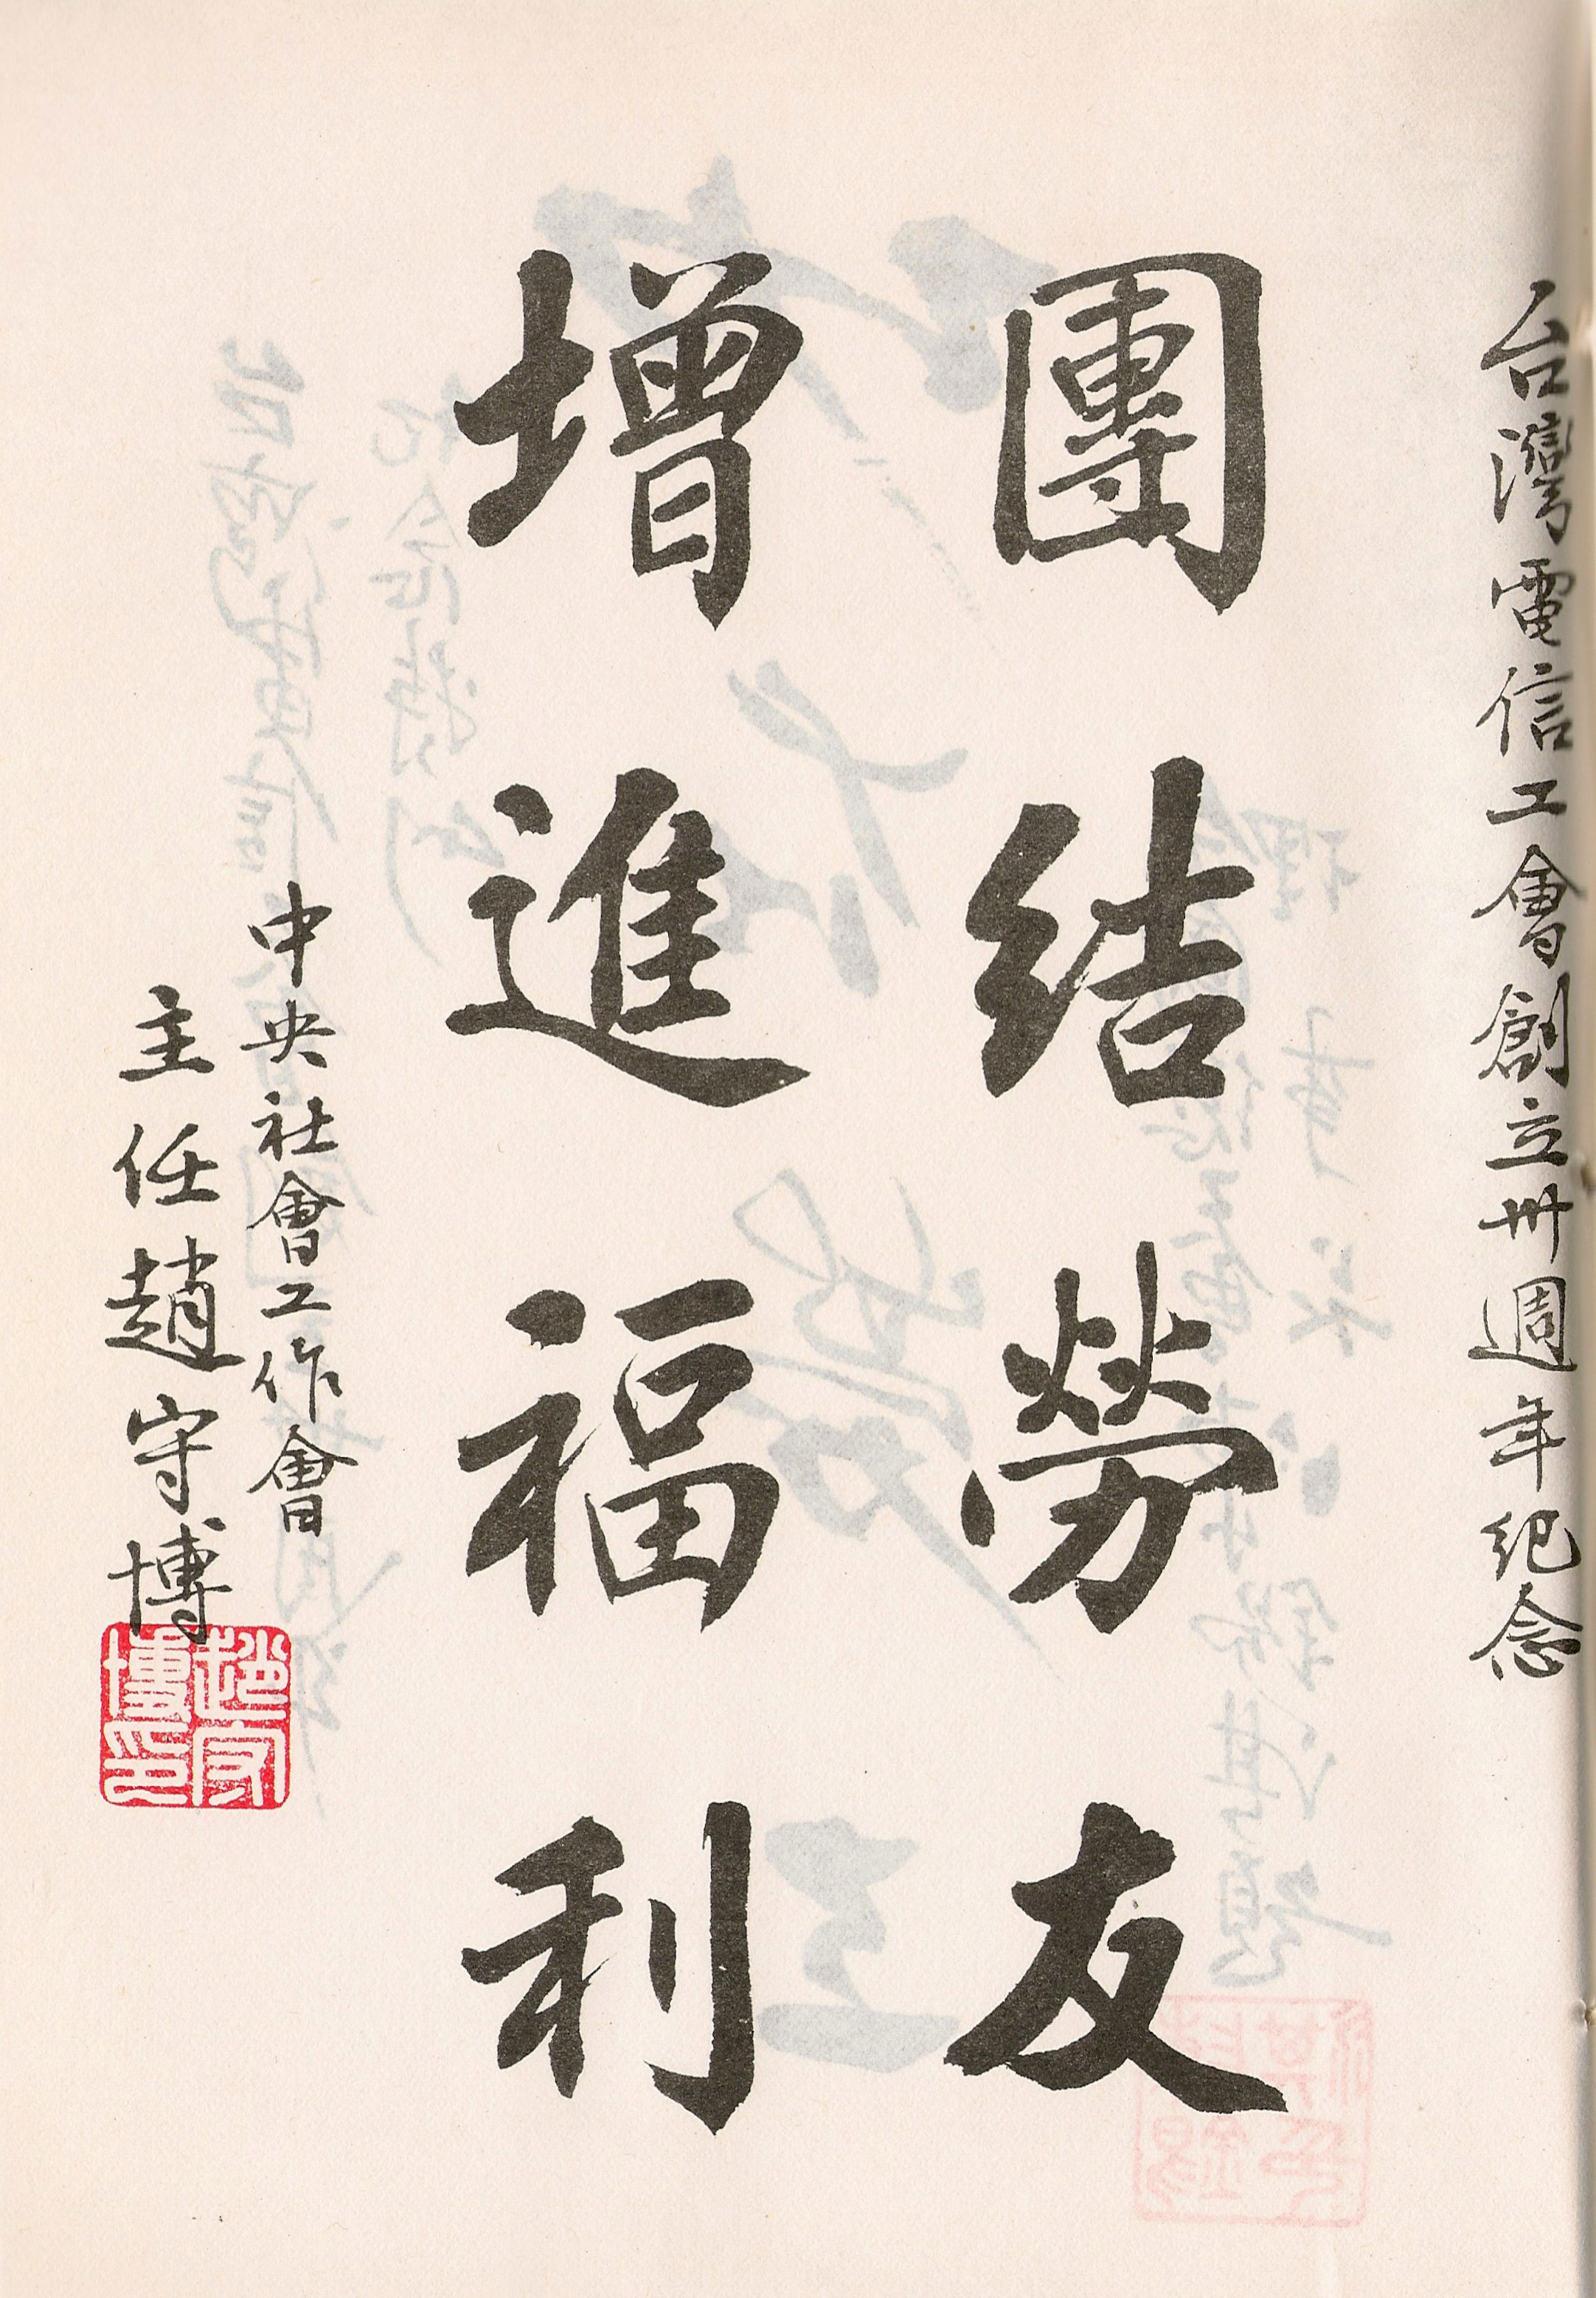 台灣電信工會創立卅週年紀念
團結勞友
增進福利
中央社會工作會
主任趙守博
趙守
博印